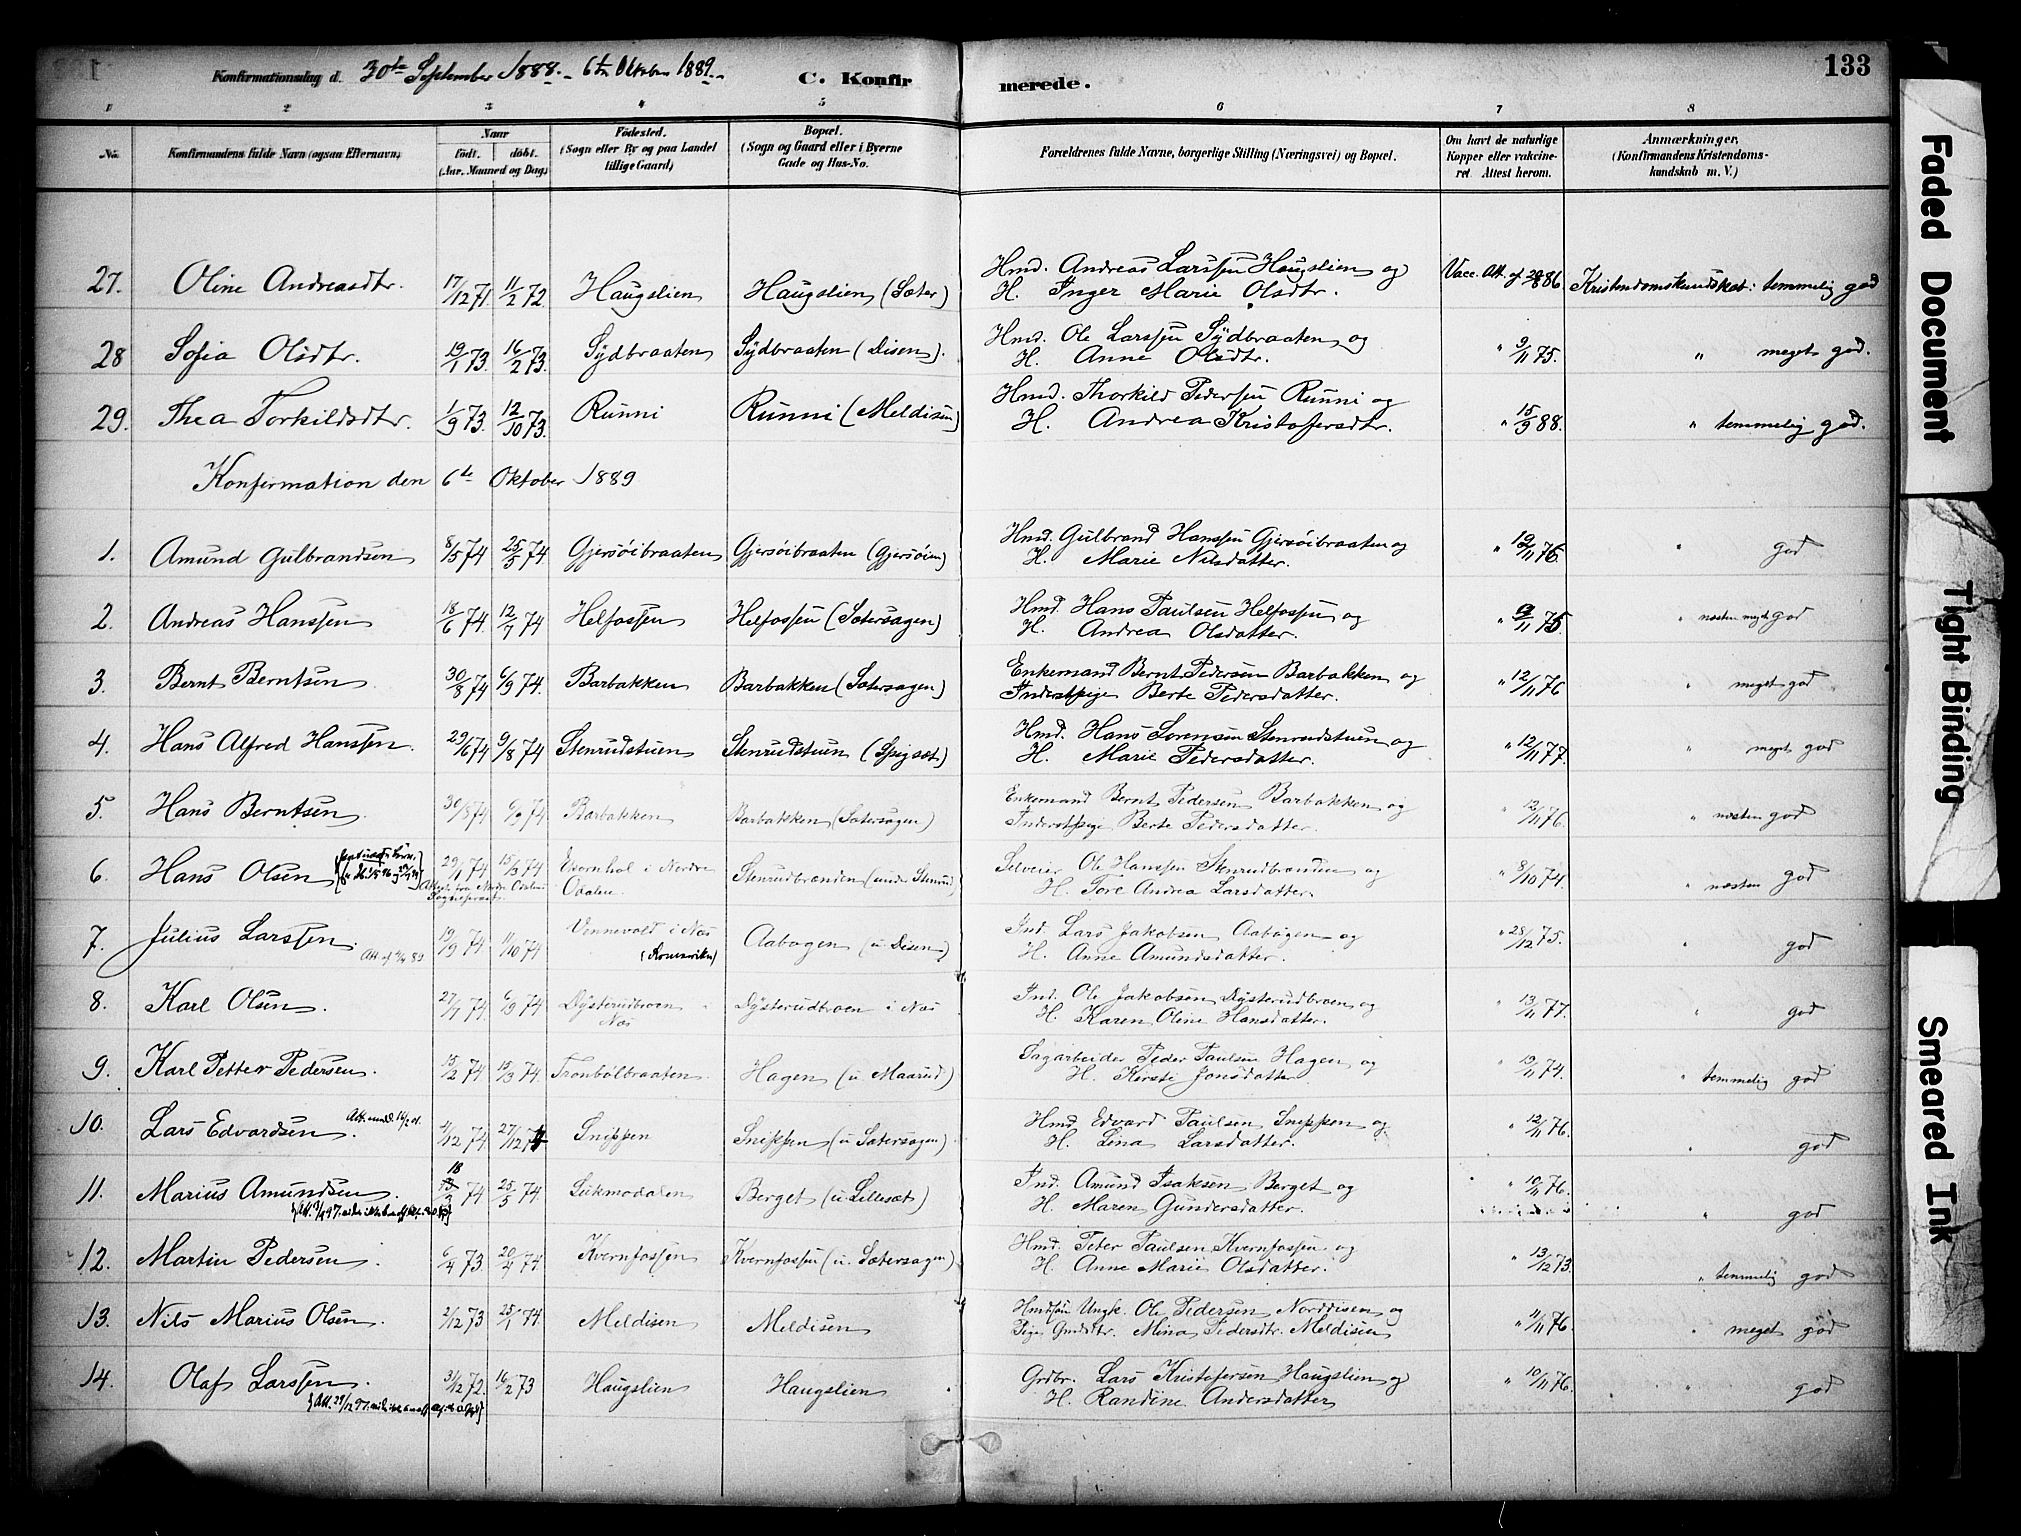 133
Konfirmationsdag d. 30te September 1888. - 6te Oktober 1889.
C. Konfirmerede.
1 2 3 4 5 6 7 8
No. Konfirmandens fulde Navn (ogsaa Efternavn) Naar Födt. döbt. (Aar, Maaned og Dag) Födested. (Sogn eller By og paa Landet tillige Gaard) Bopæl. (Sogn og Gaard eller i Byerne Gade og Hus-No. Forældrenes fulde Navne, borgerlige Stilling (Næringsvei) og Bopæl. Om havt de naturlige Kopper eller vakcineret. Attest herom. Anmærkninger. (Konfirmandens Kristendomskundskab m. V.)
27. Oline Andreasdtr. 17/12 71 11/2 72 Haugslien Haugslien (Sæter) Hmd. Andreas Larssen Haugslien og Vacc. Att. af 86 Kristendomskundskab: temmelig god
H. Inger Marie Olsdtr.
28 Sofia Olsdtr. 19/1 73. 16/2 73. Sydbraaten Sydbraaten (Disen). Hmd. Ole Larssen Sydbraaten og " 9/11 75. " meget god.
H. Anne Olsdtr.
29. Thea Torkildsdtr. 1/9 73. 12/10 73. Runni Runni (Meldisen) Hmd. Thorkild Pedersen Runni og " 15/9 88. " temmelig god.
H. Andrea Kristofersdtr.
Konfirmation den 6te Oktober 1889
1. Amund Gulbrandsen 8/5 74 25/5 74 Gjersöibraaten Gjersöibraaten (Gjersöien) Hmd. Gulbrand Hanssen Gjersöibraaten og " 12/11 76. " god
H. Marie Nilsdatter.
2. Andreas Hanssen 18/6 74. 12/7 74 Helfossen Helfossen (Sætersagen) Hmd. Hans Paulsen Helfossen og " 9/11 75 " næsten meget god
H. Andrea Olsdatter.
3. Bernt Berntsen 30/8 74 6/9 74. Barbakken Barbakken (Sætersagen) Enkemand Bernt Pedersen Barbakken og " 12/11 76 " meget god
Inderstpige Berte Pedersdatter.
4. Hans Alfred Hanssen. 29/6 74 9/8 74 Stenrudstuen Stenrudstuen (Spigset) Hmd. Hans Sorensen Stenrudstuen og " 12/11 77. " meget god
H. Marie Pedersdatter.
5. Hans Berntsen 30/8 74 6/9 74 Barbakken Barbakken (Sætersagen) Enkemand Bernt Pedersen Barbakken og " 12/11 76. " næsten god
Inderstpige Berte Pedersdatter.
6. Hans Olsen 29/1 74 15/3 74 Ekornhol i Nordre Odalen. Stenrudbrænden (under Stenrud) Selveier Ole Hanssen Stenrudbrænden og " 8/10 74. " næsten god
Attest fra Nordre Odalens Sognepræst. H. Tore Andrea Larsdatter.
7. Julius Larssen. 19/9 74 11/10 74 Vennevold i Næs (Romerike) Aabogen (u. Disen) Ind. Lars Jakobsen Aabogen og " 28/12 75. " god
H. Anne Amundsdatter.
8. Karl Olsen. 27/7 74. 6/9 74 Dysterudbroen Næs Dysterudbroen i Næs Ind. Ole Jakobsen Dysterudbroen og " 13/11 77. " god
H. Karen Oline Hansdatter.
9. Karl Petter Pedersen. 15/2 74 15/3 74. Tronbölbraaten Hagen (u. Maarud) Sagarbeider Peder Paulsen Hagen og " 13/11 74. " temmelig god
H. Kersti Jonsdatter
10. Lars Edvardsen. 4/12 74 27/12 74 Snippen Snippen (u Sætersagen) Hmd Edvard Paulsen Snippen og " 12/11 76. " god
H. Lina Larsdatter.
11. Marius Amundsen. 18/3 74 25/5 74. Lukmodalen Berget (u. Lillesæt) Ind. Amund Isaksen Berget og " 10/11 76. " god
H. Maren Gundersdatter.
12. Martin Pedersen 6/4 73 20/4 74 Kvernfossen Kvernfossen (u. Sætersagen) Hmd. Peter Paulsen Kvernfossen og " 13/12 73. " temmelig god
H. Anne Marie Olsdatter.
13. Nils Marius Olsen. 2/12 73 25/1 74. Meldisen Meldisen Hmdsön Ungk. Ole Pedersen Norddisen og " 11/11 76. " meget god
Pige Grdmdtr. Mina Pedersdtr. Meldisen
14. Olaf Larssen. 31/12 72. 16/2 73 Haugslien Haugslien Grdbr. Lars Kristofersen Haugslien og " 10/11 76. " god
H. Randine Andersdatter
Faded Document
Tight Binding
Smeared Ink